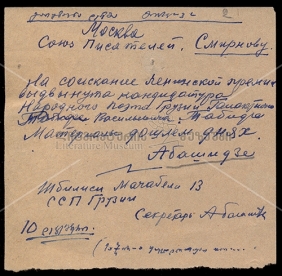 Москва
Союз Писателей. Смирнову.
На соискание Ленинской премии
выдвинута кандидатура
Народного поэта Грузии Галактиона
Васильевича Табидзе
Материалы дошлем днях.
Абашидзе
Literature Museum
Тбилиси Мачабели 13
ССП Грузии
Секретарь Абашидзе
10